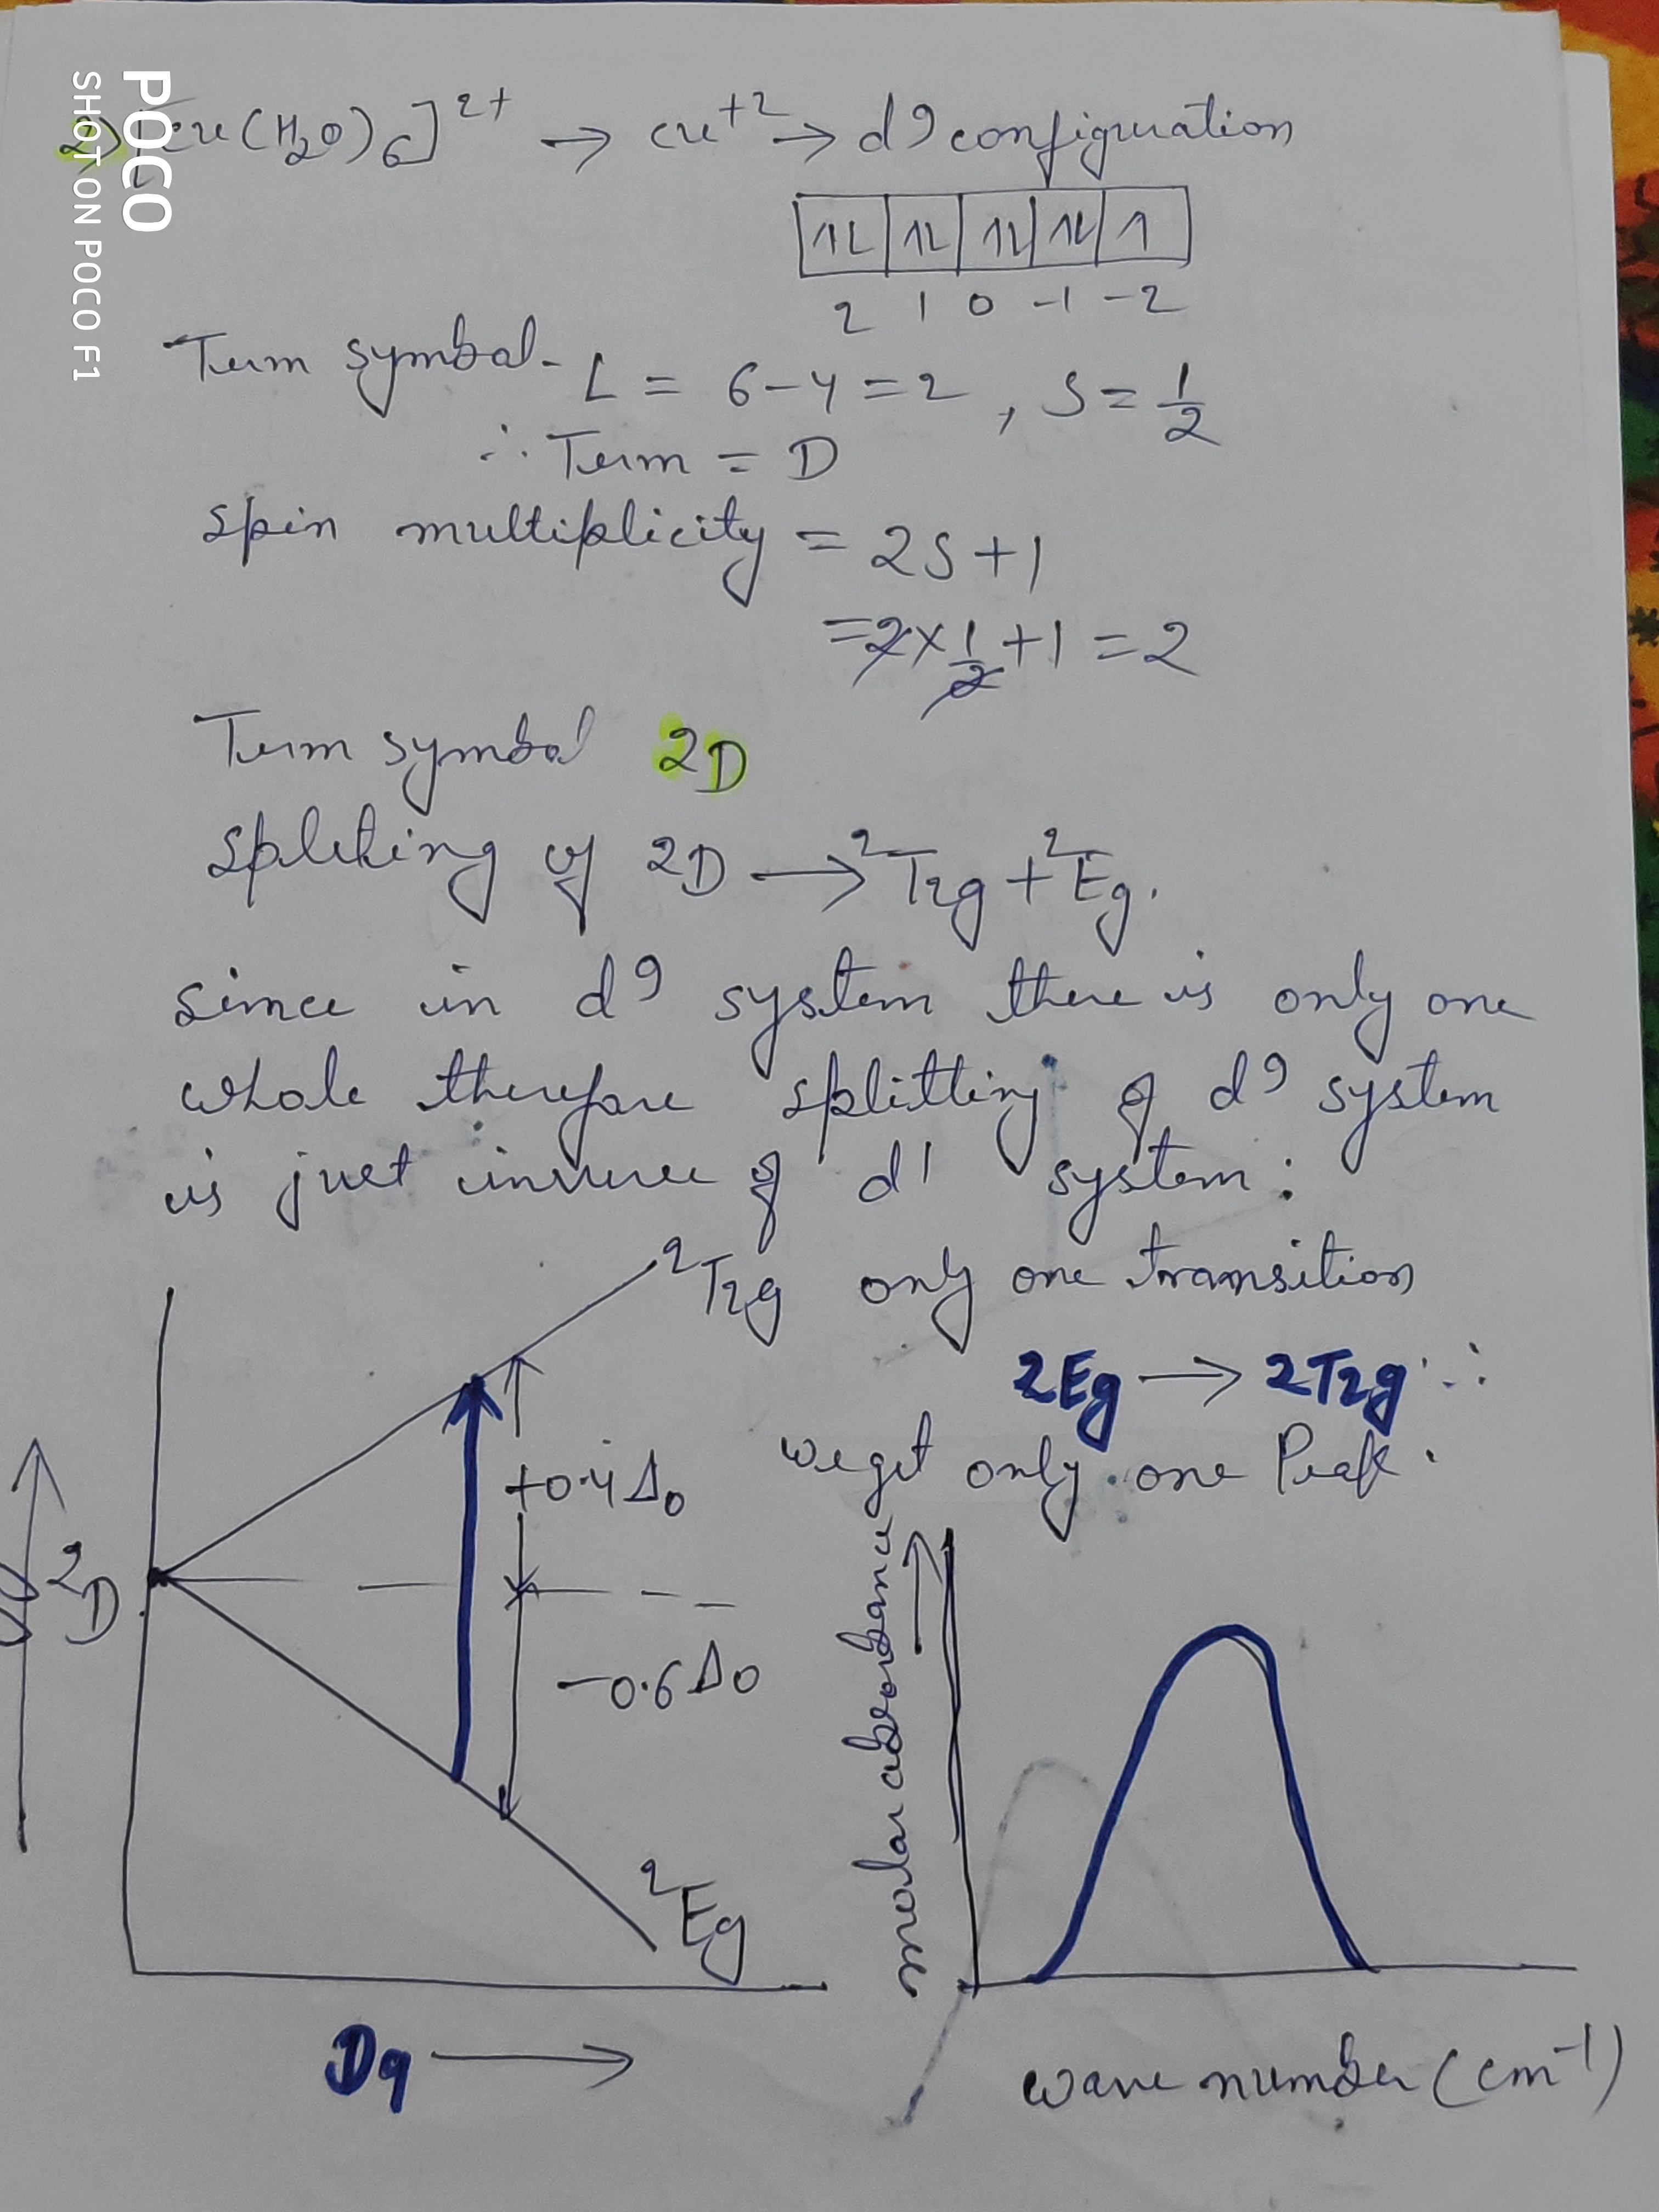 2) [Cu(H2O)6]2+ → cu+2 → d9 configuration
1L 1L 1L 1L 1
2 1 0 -1 -2
Term symbol- L = 6-4=2 , S= 1/2
∴ Term = D
spin multiplicity = 2S+1
=2×1/2+1 =2
Term symbol 2D
Spliting of 2D → 2T2g + 2Eg.
since in d9 system there is only one
whole therefore splitting of d9 system
is just inverse of d1 system:
2T2g only one transition
2Eg → 2T2g ∴
we get only one Peak.
+0.4Δo
2D
-0.6Δo
2Eg
Dq →
molar absorbance →
wave number (cm-1)
POCO
SHOT ON POCO F1